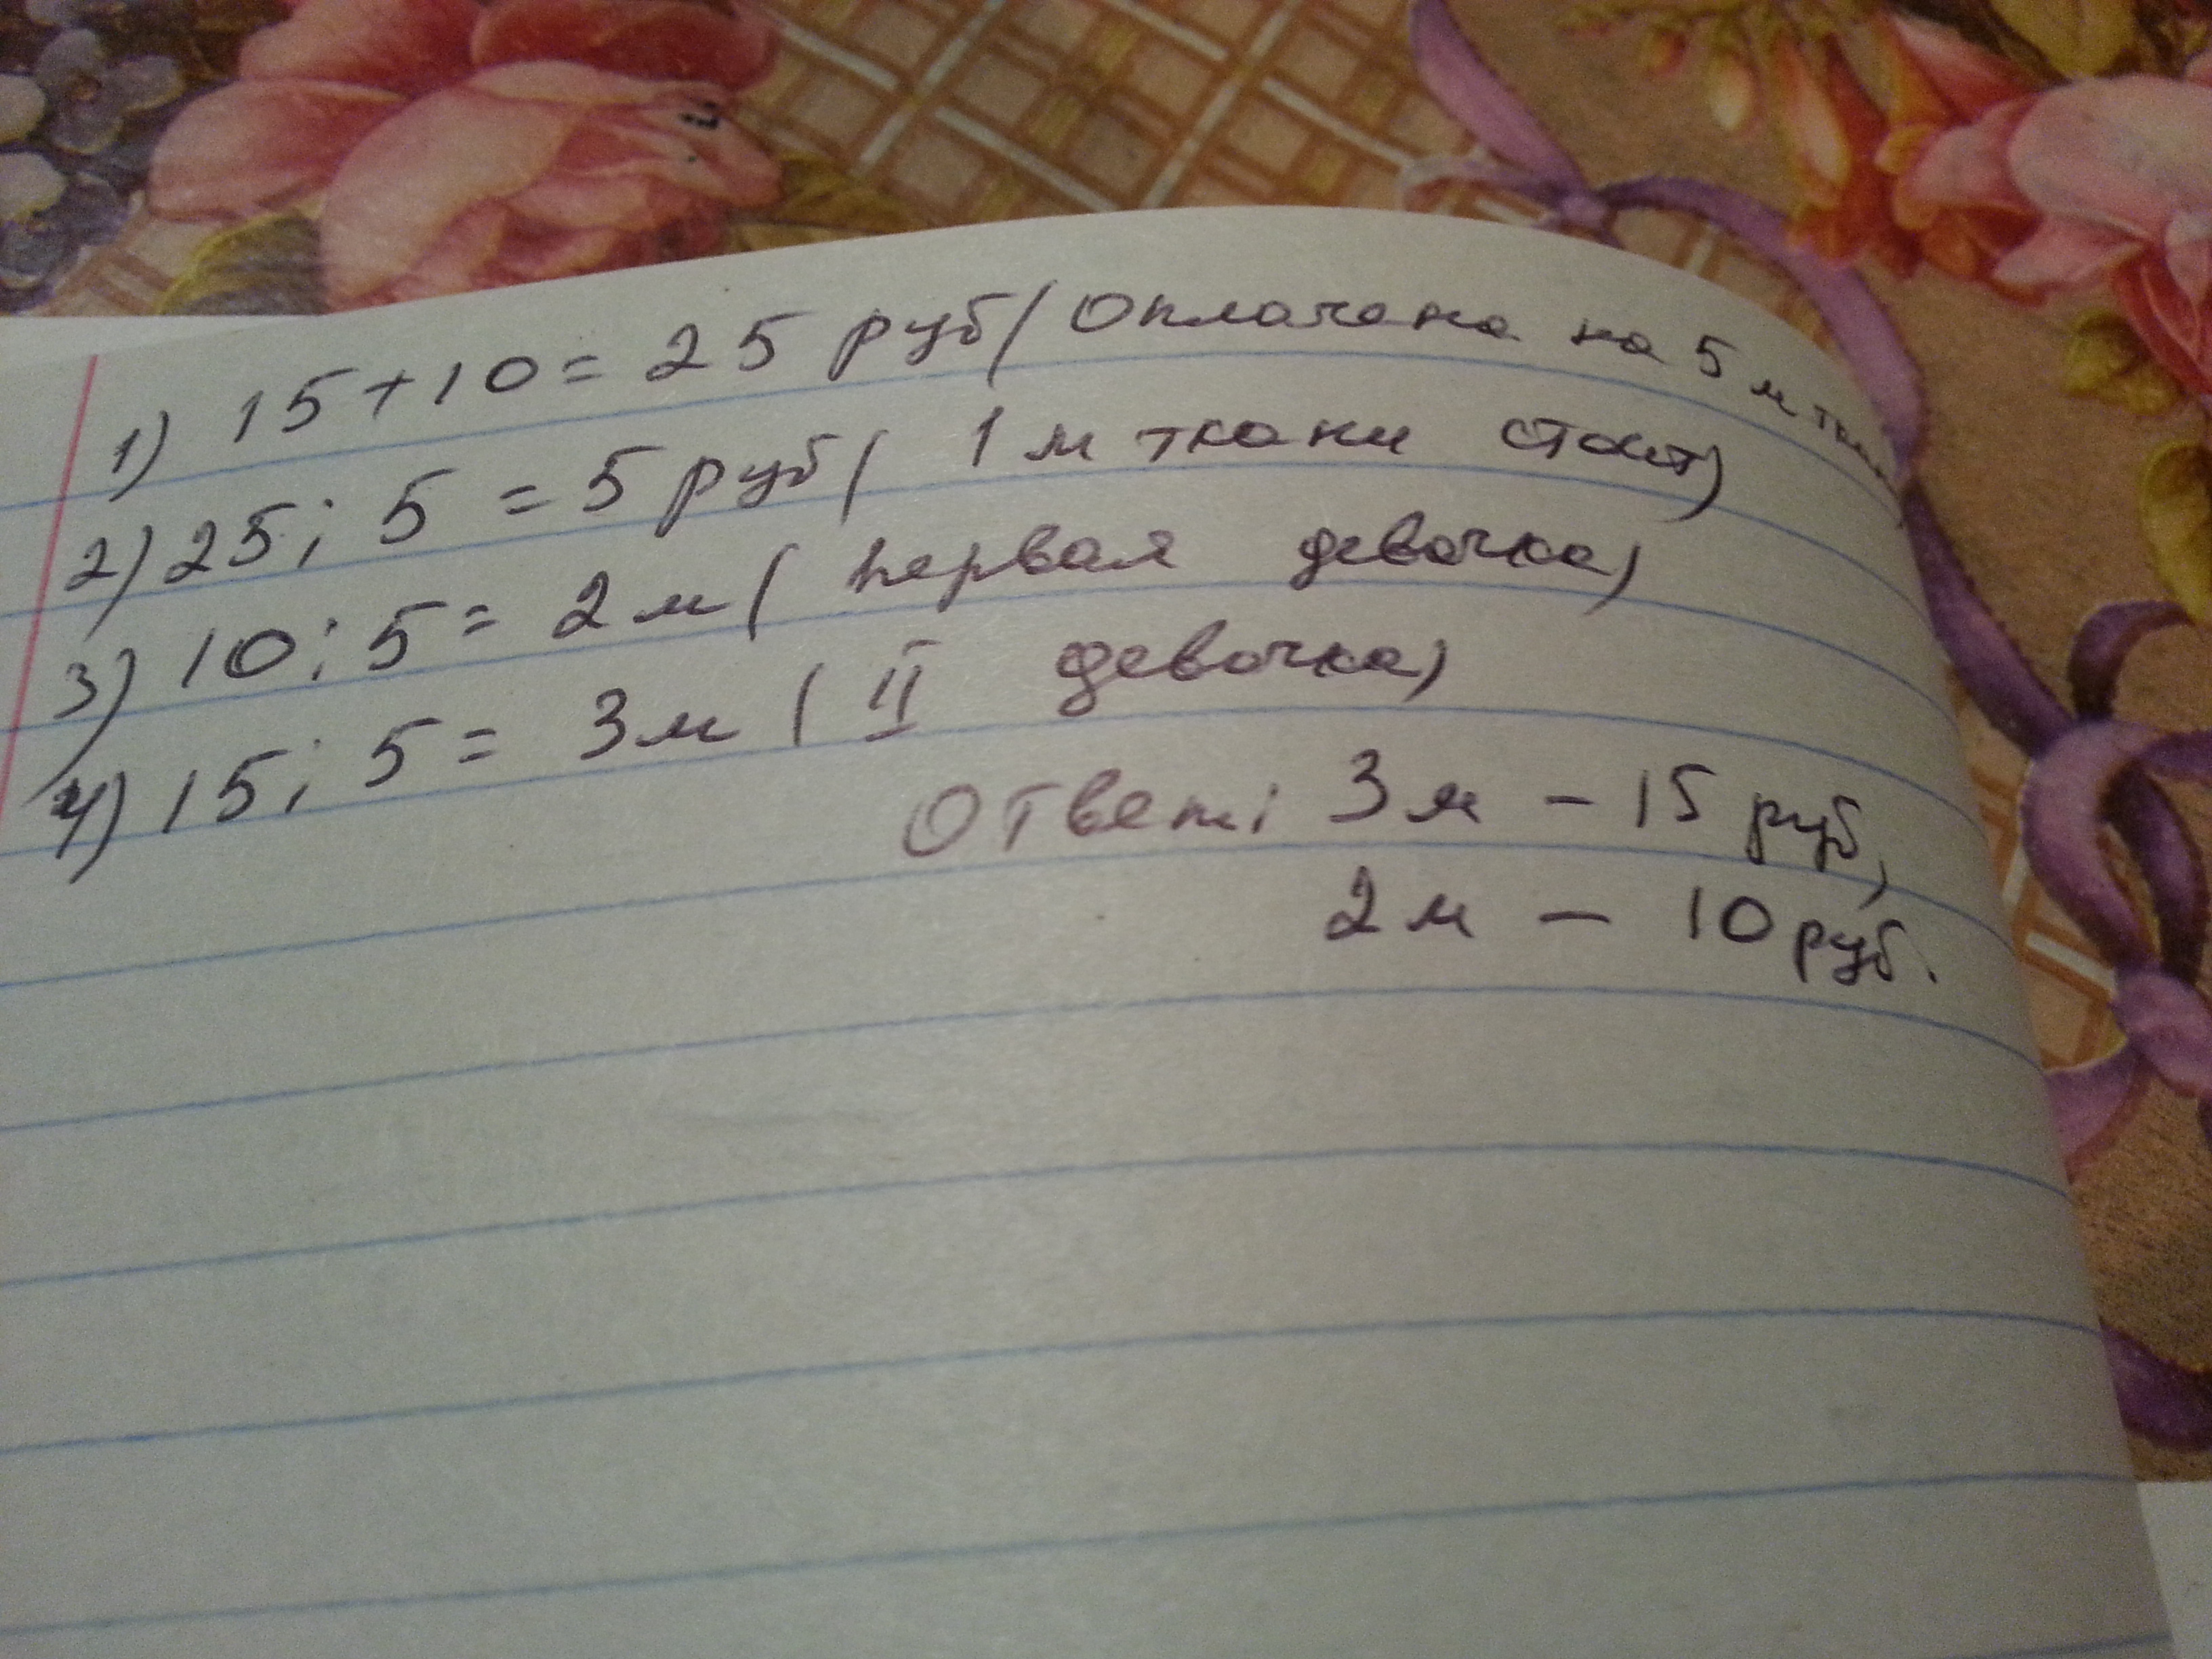 1) 15+10=25 руб (Оплачена на 5 м ткани)
2) 25 : 5 = 5 руб ( 1 м ткани стоит)
3) 10 : 5 = 2 м ( первая девочка)
4) 15 : 5 = 3 м ( II девочка)
Ответ: 3 м – 15 руб,
2 м – 10 руб.